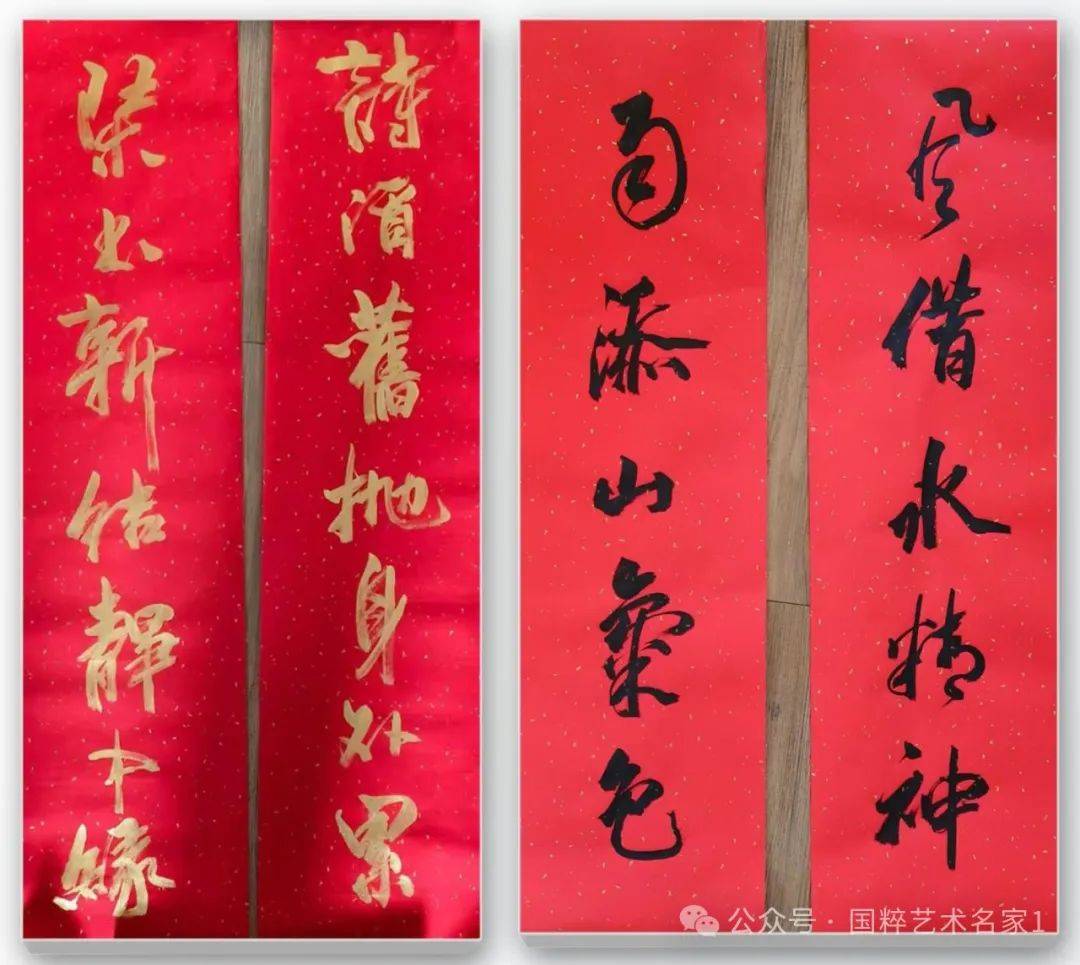 詩酒舊抛身外累
書新結静中緣
風借水精神
雨添山氣色
公众号 · 国粹艺术名家1